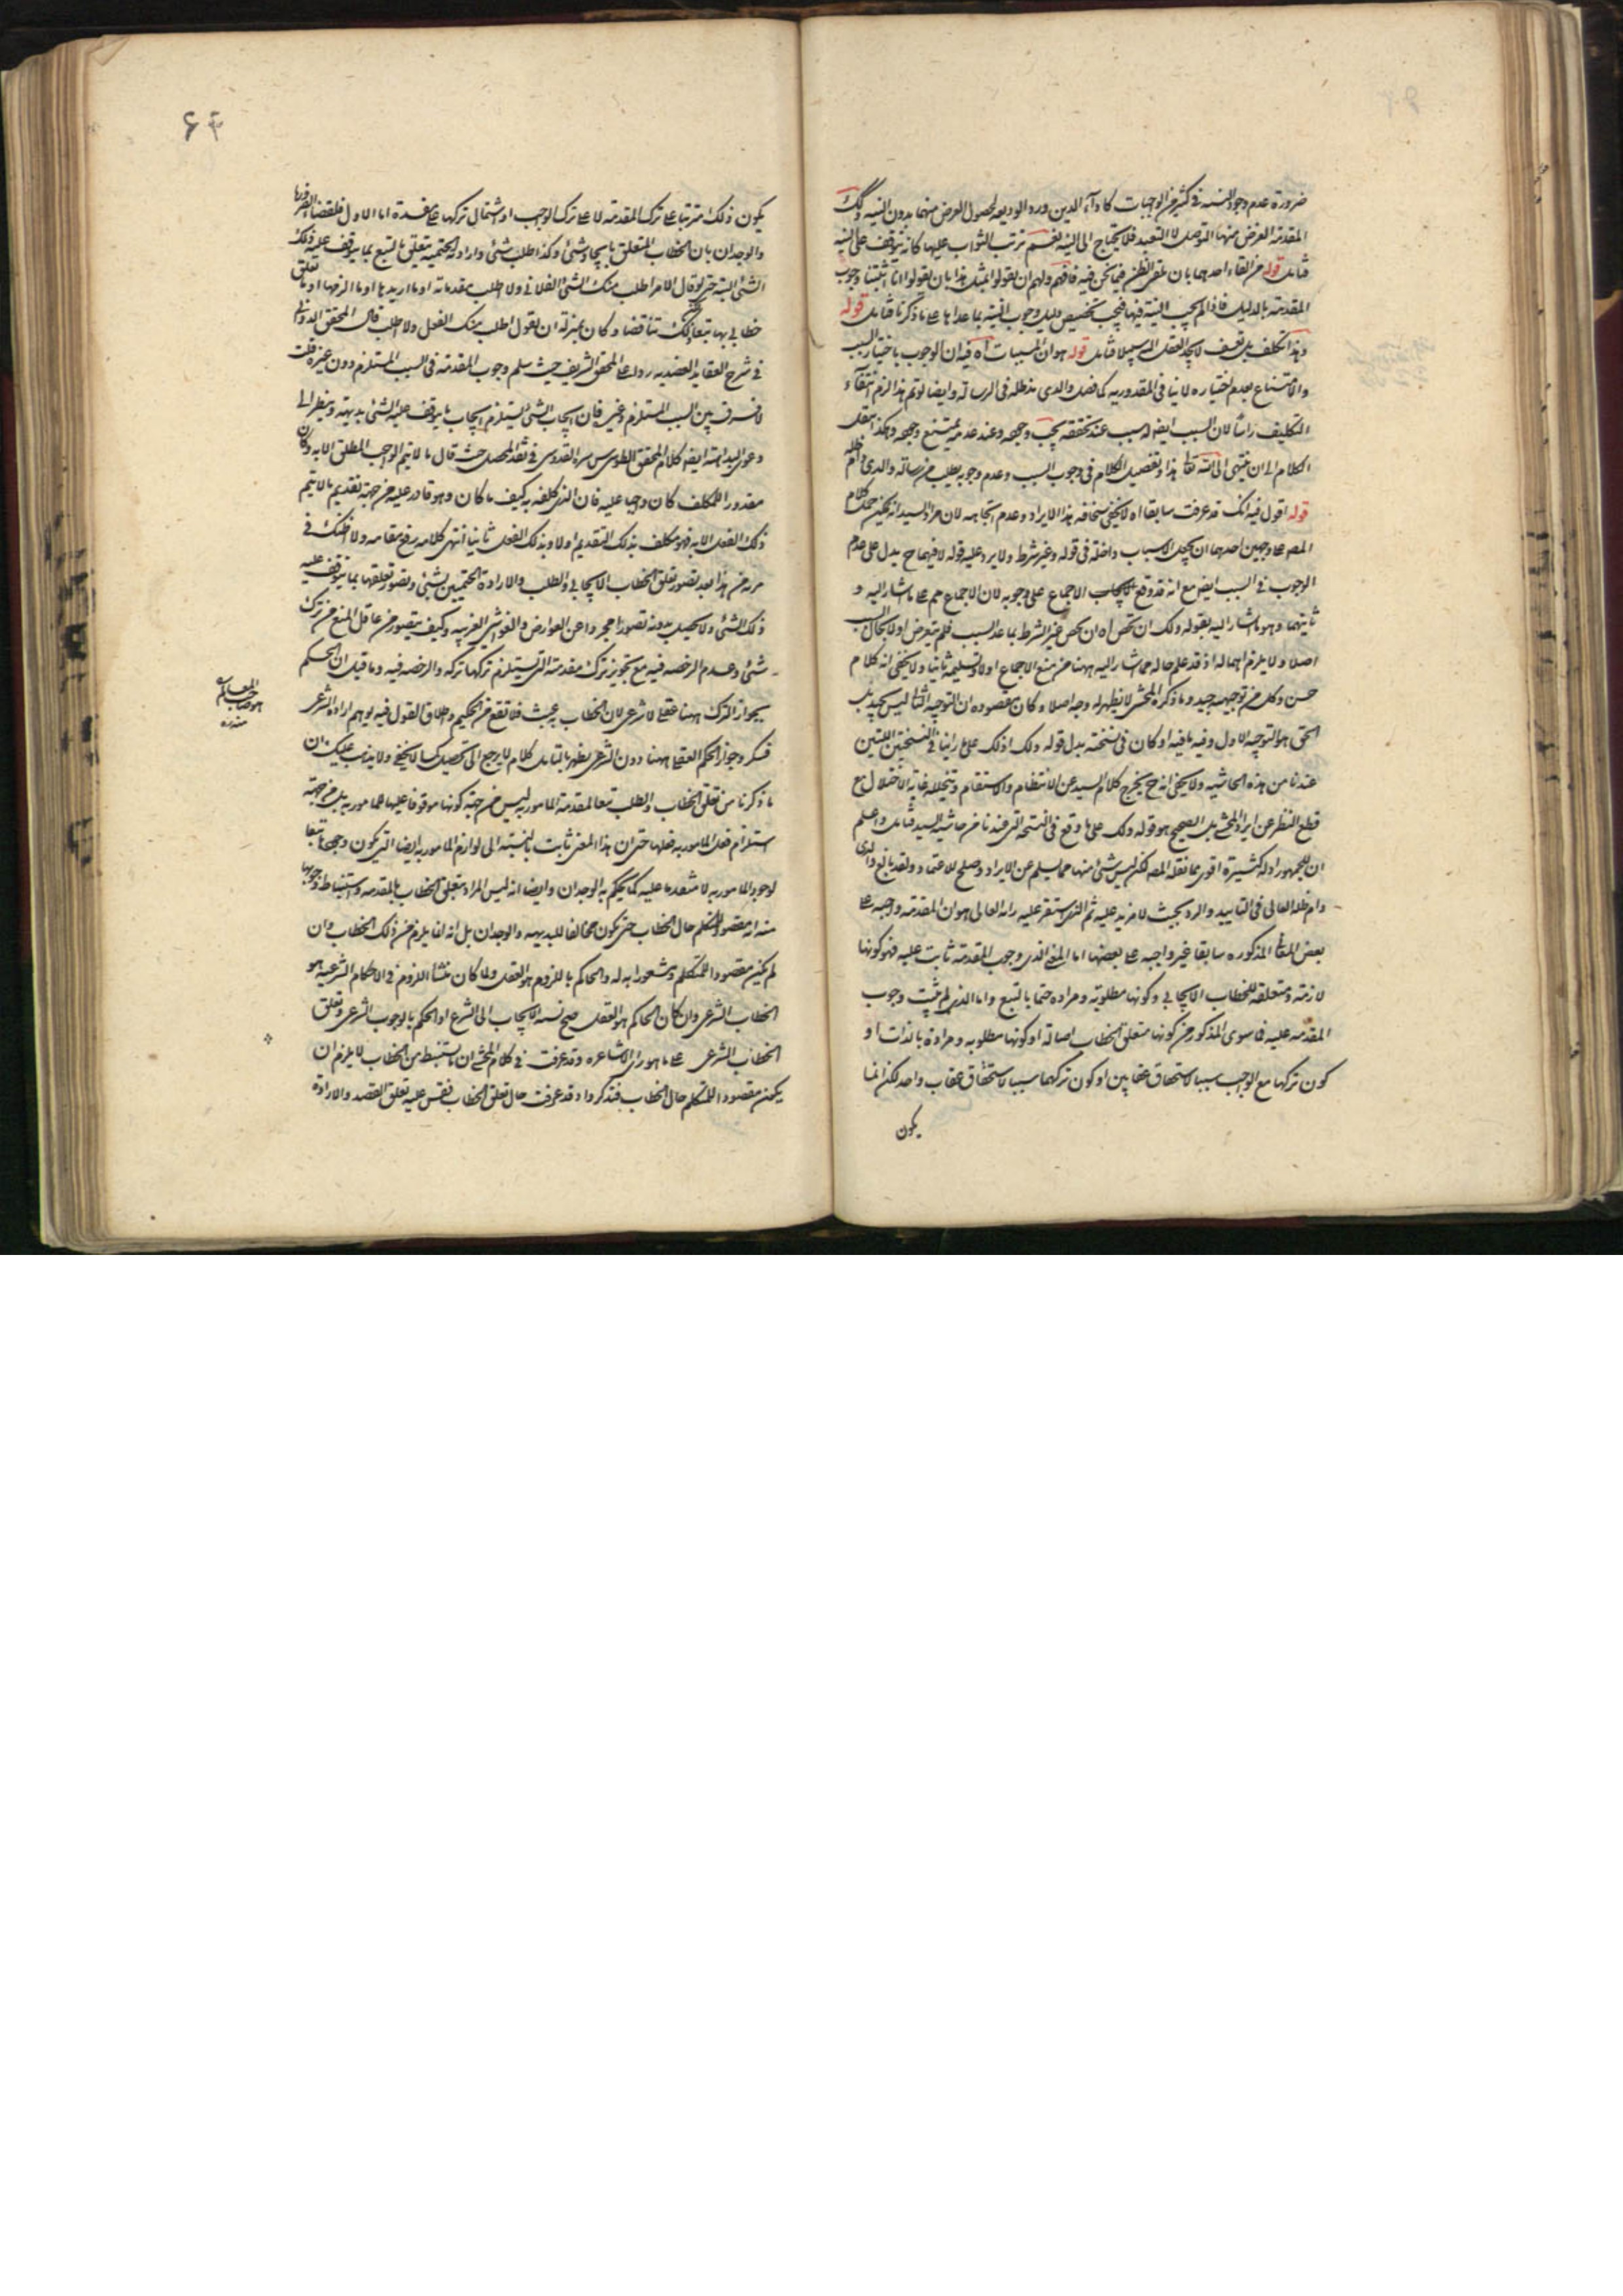 ضرورة عدم وجود النية في كثير من الواجبات كاداء الدين ورد الوديعه لحصول الغرض منهما بدون النية وكك
المقدمة الغرض منها التوصل لا التعبد فلا يحتاج الى النية نعم ترتب الثواب عليها كانه يتوقف على النية
فتامل قوله من القاء احدهما بان فيما نحن فيه فافهم ولهم ان يقولوا بمثل هذا بان يقولوا انا اثبتنا وجوب
المقدمة بالدليل فاذا لم يجب النية فيها فيجب تخصيص دليل وجوب النية بما عداها على ما ذكرنا فتامل قوله
وهذا تكلف بل تعسف لا يجد العقل اليه سبيلا فتامل قوله هو ان المسببات اه فيه ان الوجوب باختيار السبب
والامتناع بعدم اختياره لا ينافي المقدورية كما فصله والدي مد ظله في الرسالة وايضا لو تم هذا لزم انتفاء
التكليف راسا لان السبب ايضا له سبب عند تحققه يجب وجوده وعند عدمه يمتنع وجوده وهكذا ينقل
الكلام الى ان ينتهي الى الله تعالى هذا وتفصيل الكلام في وجوب السبب وعدم وجوبه يطلب من رسالة والدي دام ظله
قوله اقول فيه انك قد عرفت سابقا اه لا يخفى سخافة هذا الايراد وعدم اتجاهه لان مراد السيد انه يمكن حمل كلام
المصر على وجهين احدهما ان يجعل الاسباب داخلة في قوله وغير شرط ولا يرد عليه قوله لا فيهما ح يدل على عدم
الوجوب في السبب ايضا مع انه قد وقع الاجماع على وجوبه لان الاجماع مم على ما اشار اليه و
ثانيهما وهو ما اشار اليه بقوله ولك ان تخص اه ان يخص غير الشرط بما عدا السبب فلم يتعرض اولا بحال السبب
اصلا ولا يلزم اهماله اذ قد علم حاله مما اشار اليه ههنا من منع الاجماع اولا وتسليمه ثانيا ولا يخفى انه كلام
حسن وكل من توجيهيه جيد وما ذكره المحشي لا يظهر له وجه اصلا وكان مقصوده ان التوجيه الثاني ليس بجيد بل
الحق هو التوجيه الاول وفيه ما فيه او كان في نسخته بدل قوله ولك اذ لك على ما راينا في النسختين اللتين
عندنا من هذه الحاشيه ولا يخفى انه ح يخرج كلام السيد عن الانتظام والاستقام ويختل غاية الاختلال مع
قطع النظر عن ايراد المحشي بل الصحيح هو قوله ولك على ما وقع في النسخة التي عندنا من حاشية السيد فتامل واعلم
ان للجمهور ادلة كثيرة اقوى مما نقله المصر لكن ليس شئ منها مما يسلم عن الايراد ويصلح للاعتماد ولقد بالغ والدي
دام ظله العالي في التاييد والرد بحيث لا مزيد عليه ثم الذي استقر عليه رايه العالي هو ان المقدمة واجبه على
بعض المعاني المذكوره سابقا غير واجبه على بعضها اما المعنى الذي وجوب المقدمة ثابت عليه فهو كونها
لازمة ومتعلقه للخطاب الايجابي وكونها مطلوبة ومراده حتما بالتبع واما الذي لم يثبت وجوب
المقدمه عليه فما سوى المذكور من كونها متعلق الخطاب اصالة او كونها مطلوبه ومرادة بالذات او
كون تركها مع الواجب سببا لاستحقاق عقابين او كون تركها سببا لاستحقاق عقاب واحد لكن انما
يكون
۶۴
يكون ذلك مترتبا على ترك المقدمة لا على ترك الواجب او اشتمال تركها على مفسدة اما الاول فلقضاء الضرورة
والوجدان بان الخطاب المتعلق بايجاد شئ وكذا طلب شئ وارادته الحتمية يتعلق بالتبع بما يتوقف عليه ذلك
الشئ البتة حتى لو قال الامر اطلب منك الشئ الفلاني ولا اطلب مقدماته او ما اريدها او ما الزمها او ما تعلق
خطابي بها تبعا لذلك تناقضا وكان بمنزلة ان يقول اطلب منك الفعل ولا اطلب قال المحقق الدواني
في شرح العقايد العضديه ردا على المحقق الشريف حيث سلم وجوب المقدمة في السبب المستلزم دون غيره قلت
لا فرق بين السبب المستلزم وغيره فان ايجاب الشئ يستلزم ايجاب ما يتوقف عليه الشئ بديهة وينظر الى
دعوى البداهة ايضا كلام المحقق الطوسي سره القدوسي في نقد المحصل حيث قال ما لا يتم الواجب المطلق الا به وكان
مقدورا للمكلف كان واجبا عليه فان الذي كلفه به كيف ما كان وهو قادر عليه من جهة تقديم ما لا يتم
ذلك الفعل الا به فهو مكلف بذلك التقديم اولا وبذلك الفعل ثانيا انتهى كلامه رفع مقامه ولا اظنك في
مرية من هذا بعد تصور تعلق الخطاب الايجابي والطلب والارادة الحتميين بشئ وتصور تعلقها بما يتوقف عليه
ذلك الشئ ولا يحصل بدونه تصورا مجردا عن العوارض والغواشي الغريبه وكيف يتصور من عاقل المنع من ترك
شئ وعدم الرخصه فيه مع تجويز ترك مقدمته التي يستلزم تركها تركه والرخصه فيه وما قيل ان الحكم
بجواز الترك ههنا عقلي لا شرعي لان الخطاب به عبث فلا تقع من الحكيم واطلاق القول فيه يوهم ارادة الشرعي
فينكر وجواز الحكم العقلي ههنا دون الشرعي يظهر بالتامل كلام لا يرجع الى تحصيل كما لا يخفى ولا يذهب عليك ان
ما ذكرنا من تعلق الخطاب والطلب تبعا لمقدمة المامور به ليس من جهة كونها موقوفا عليها للمامور به بل من جهة
استلزام فعل المامور به فعلها حتى ان هذا المعنى ثابت بالنسبة الى لوازم المامور به ايضا التي يكون وجودها تابعا
لوجود المامور به لا متقدما عليه كما يحكم به الوجدان وايضا انه ليس المراد بتعلق الخطاب بالمقدمه واستنباط وجوبها
منه انه مقصود للمتكلم حال الخطاب حتى يكون مخالفا للبديهه والوجدان بل انه انما يلزم من ذلك الخطاب وان
لم يكن مقصودا للمتكلم ومشعورا به له والحاكم باللزوم هو العقل ولما كان منشا اللزوم في الاحكام الشرعيه هو
الخطاب الشرعي وان كان الحاكم هو العقل صح نسبة الايجاب الى الشرع او الحكم بالوجوب الشرعي وتعلق
الخطاب الشرعي على ما هو راي الاشاعره وقد عرفت في كلام المحشي ان ما يستنبط من الخطاب لا يلزم ان
يكون مقصودا للمتكلم حال الخطاب فتذكر واذ قد عرفت حال تعلق الخطاب فقس عليه تعلق القصد والارادة
هو صاحب المعالم
منه ره